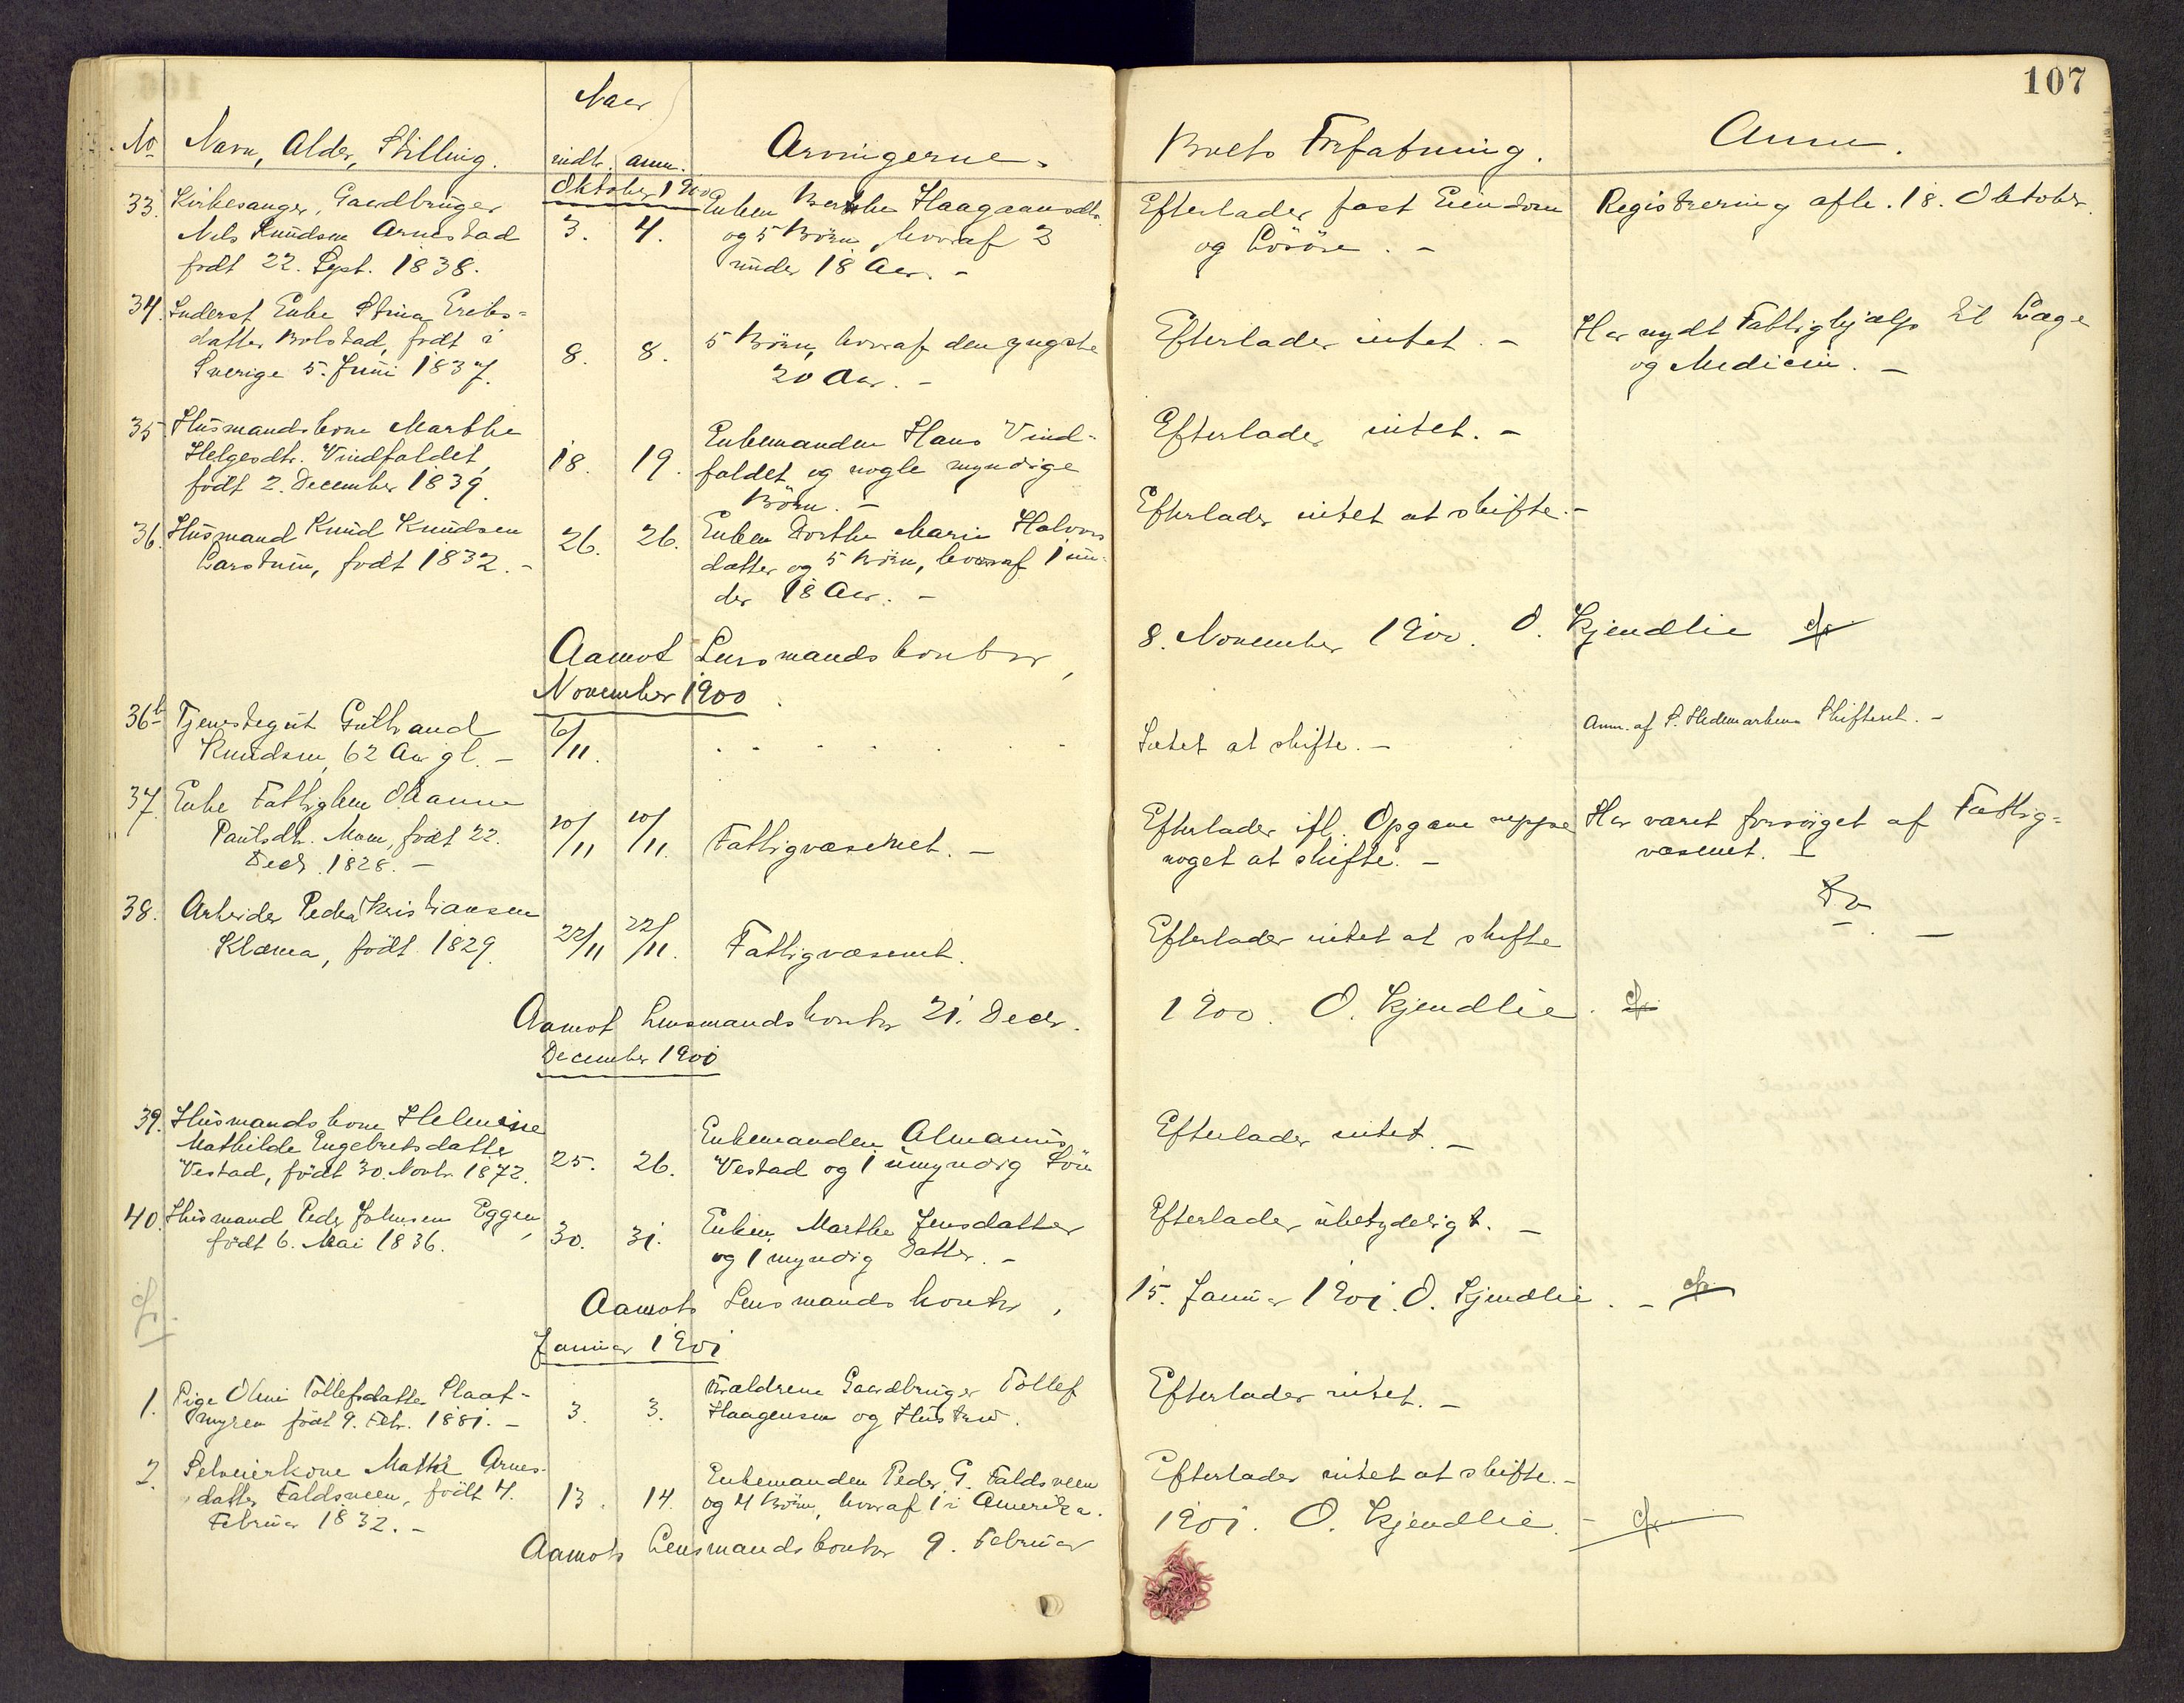 107
Naar
No Navn, Alder, Stilling. indtr. anm. Arvingerne. Boets Forfatning. Anm.
Oktober 1900
33. Kirkesanger, Gaardbruger
Nils Knudsen Arnestad
født 22. Sept. 1838.
3. 4.
Enken Berthe Haagaansdtr.
og 5 Børn, hvoraf 2
under 18 Aar. -
Efterlader fast Eiendom
og Løsøre. -
Registrering afh. 18. Oktober.
34. Inderst Enke Stina Eriks=
datter Bolstad, født i
Sverige 5. Juni 1837.
8. 8.
5 Børn, hvoraf den yngste
20 Aar. -
Efterlader intet. -
Har nydt Fattighjælp til Læge
og Medicin. -
35 Husmandskone Marthe
Helgesdtr. Vindfaldet,
født 2. December 1839.
18. 19.
Enkemanden Hans Vind-
faldet og nogle myndige
Børn. -
Efterlader intet. -
36. Husmand Knud Knudsen
født 1832. -
26. 26.
Enken Dorthe Marie Halvors
datter og 5 Børn, hvoraf 1 un-
der 18 Aar. -
Efterlader intet at skifte. -
Aamot Lensmandskontor,
8. November 1900. O. Kjendlie
November 1900.
36b Tjenestegut Gulbrand
Knudsen, 62 Aar gl. -
6/11.
Intet at skifte. -
Anm. af S. Hedemarkens Skifteret. -
37. Enke Fattiglem Oleanne
Paulsdtr. Moen, født 22.
Decbr. 1828. -
10/11 10/11.
Fattigvæsenet. -
Efterlader ifl. Opgave neppe
noget at skifte. -
Har været forsørget af Fattig=
væsenet. -
38. Arbeider Peder Kristiansen
Klæma, født 1829.
22/11 22/11.
Fattigvæsenet.
Efterlader intet at skifte
Do -
Aamot Lensmandskontor 21. Decbr.
1900. O. Kjendlie.
December 1900
39. Husmandskone Helmine
Mathilde Engebretsdatter
Vestad, født 30. Novbr. 1872.
25. 26.
Enkemanden Almanus
Vestad og 1 umyndig Søn
Efterlader intet. -
40. Husmand Peder Johnsen Eggen,
født 6. Mai 1836.
30. 31.
Enken Marthe Jensdatter
og 1 myndig Datter. -
Efterlader ubetydeligt. -
Aamots Lensmandskontor,
15. Januar 1901. O. Kjendlie. -
Januar 1901
1. Pige Oline Tollefsdatter Plaat-
myren født 9. Febr. 1881. -
3. 3.
Forældrene Gaardbruger Tollef
Haagensen og Hustru.
Efterlader intet. -
2. Selveierkone Mathe Arnes-
datter Faldsveen, født 4.
Februar 1832. -
13. 14.
Enkemanden Peder G. Faldsveen
og 4 Børn, hvoraf 1 i Amerika.
Efterlader intet at skifte. -
Aamots Lensmandskontor 9. Februar
1901. O. Kjendlie. -